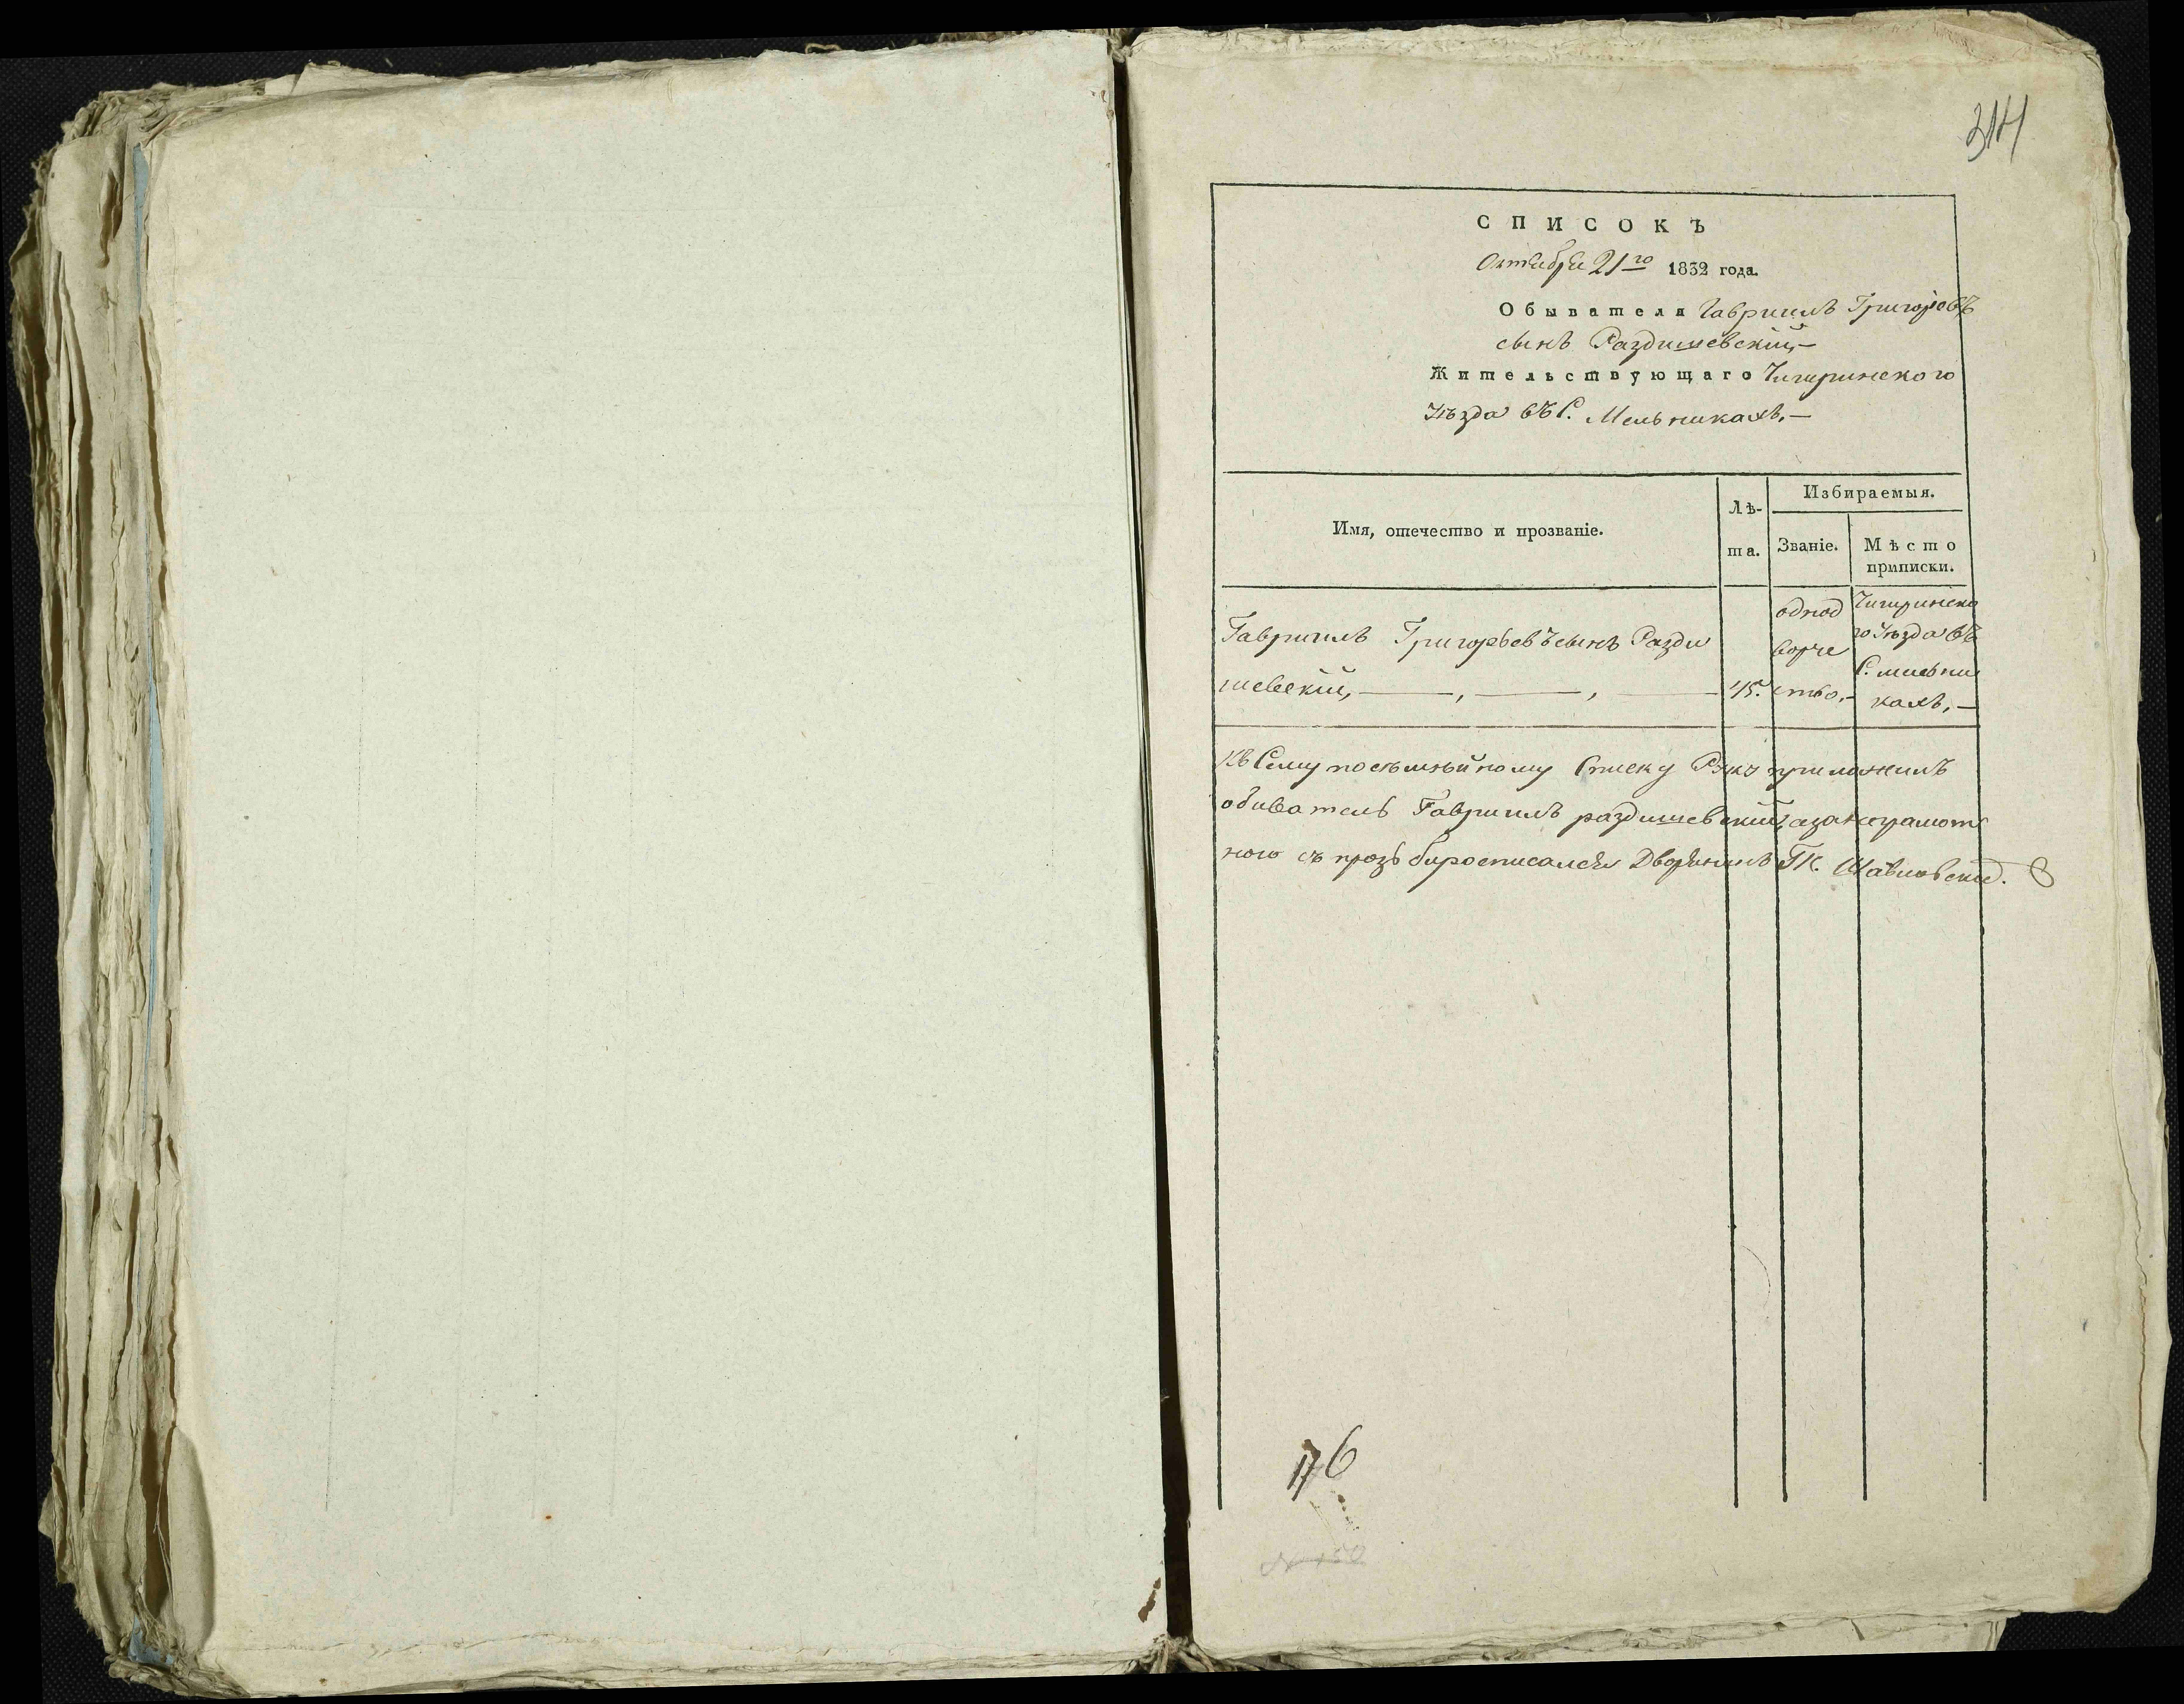 314
СПИСОКЪ
Октября 21го 1832 года.
Обывателя Гавриилъ Григорьевъ
сынъ Раздишевскій,—
Жительствующаго Чигиринского
Уѣзда въ С. Мельникахъ.—
Имя, отечество и прозваніе.
Лѣ-
та.
Избираемыя.
Званіе.
Мѣсто
приписки.
Гавриилъ Григорьевъ сынъ Разди
шевскій,
45.
однод
ворче
ство.—
Чигиринско
го Уѣзда въ
С. Мельни
кахъ,—
Къ Сему посѣмѣйному Списку Руку приложилъ
обиватель Гавриилъ раздишевскій, азанеграмот
ного съ прозьби росписалси Дворянинъ
176